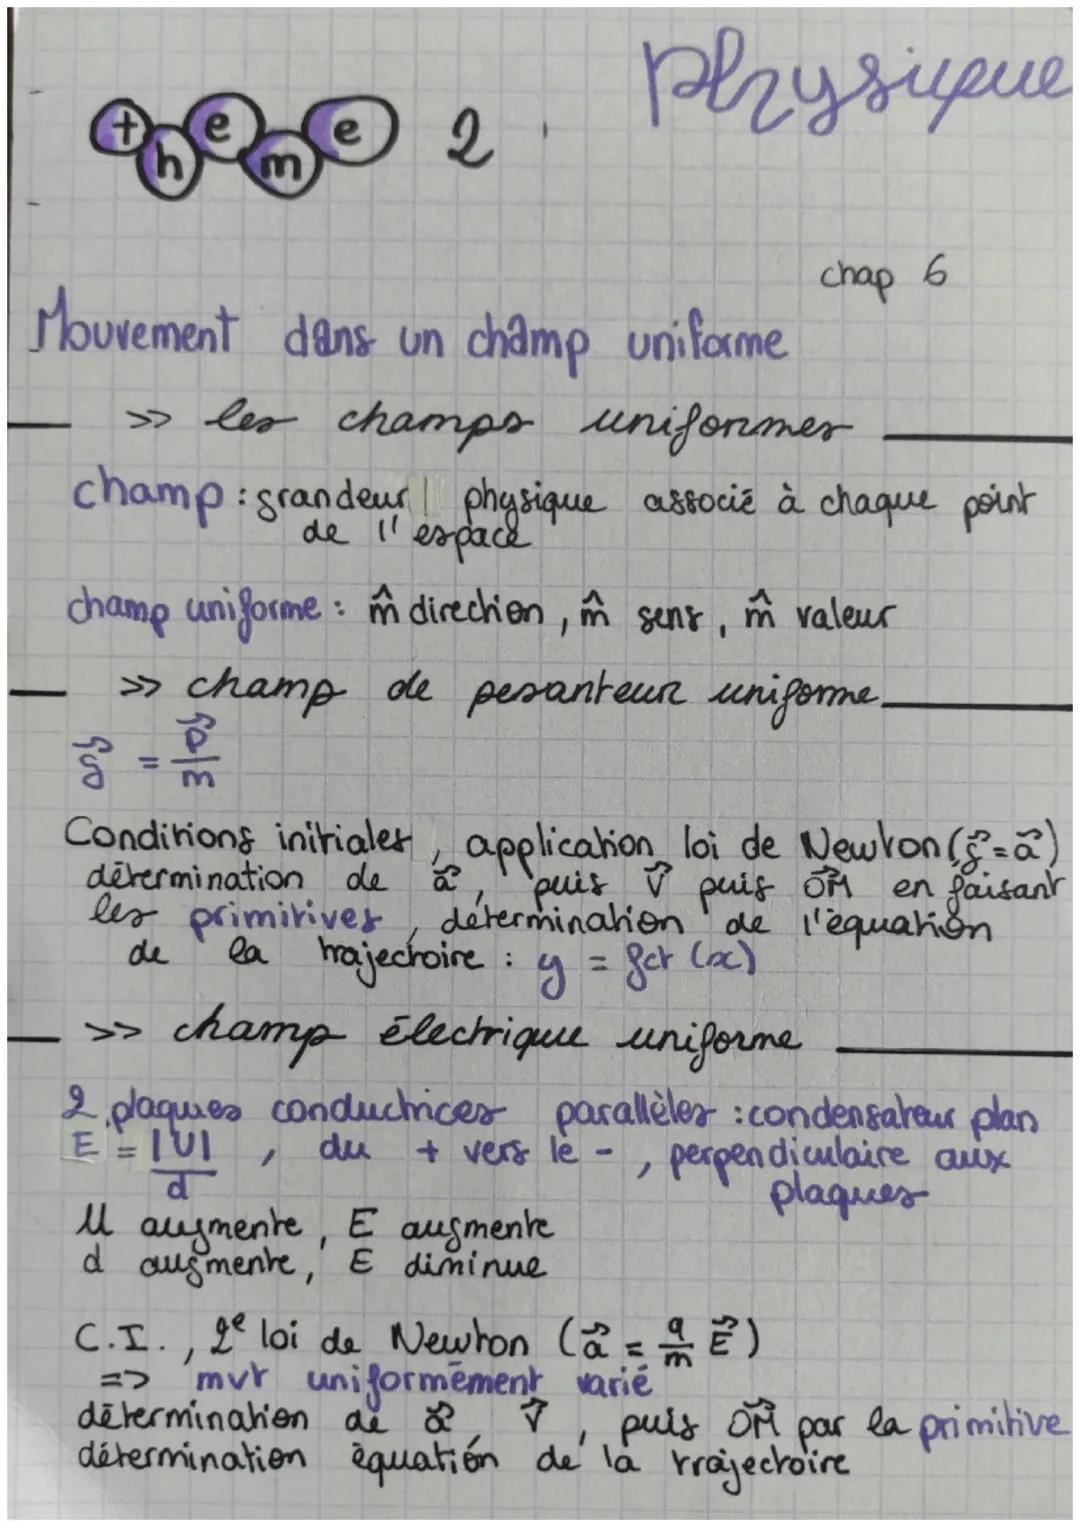 Physique
theme 2
chap 6
Mouvement dans un champ uniforme
>> les champs uniformes
champ : grandeur physique associé à chaque point
de l'espace
champ uniforme : m̂ direction, m̂ sens, m̂ valeur
>> champ de pesanteur uniforme
g⃗ = P⃗/m
Conditions initiales, application loi de Newton (g⃗ = a⃗)
détermination de a⃗, puis v⃗ puis OM⃗ en faisant
les primitives, détermination de l'équation
de la trajectoire : y = fct (x)
>> champ électrique uniforme
2 plaques conductrices parallèles : condensateur plan
E = |U|/d, du + vers le -, perpendiculaire aux
plaques
U augmente, E augmente
d augmente, E diminue
C.I., 2e loi de Newton (a⃗ = q/m E⃗)
=> mvt uniformément varié
détermination de a⃗, v⃗, puis OM⃗ par la primitive
détermination équation de la trajectoire